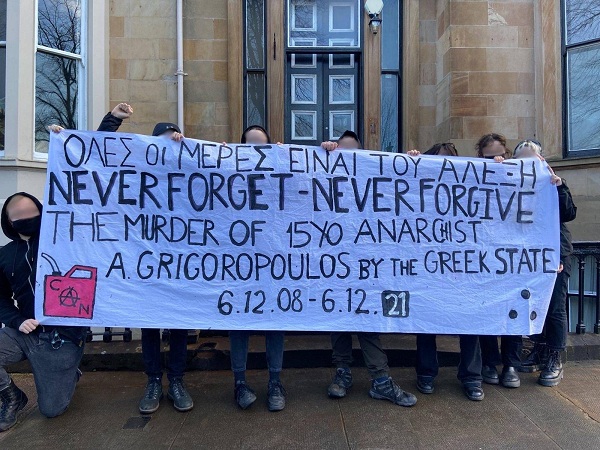 ΟΛΕΣ ΟΙ ΜΕΡΕΣ ΕΙΝΑΙ ΤΟΥ ΑΛΕΞΗ
NEVER FORGET - NEVER FORGIVE
THE MURDER OF 15YO ANARCHIST
A. GRIGOROPOULOS BY THE GREEK STATE
6.12.08 - 6.12.21
C A N